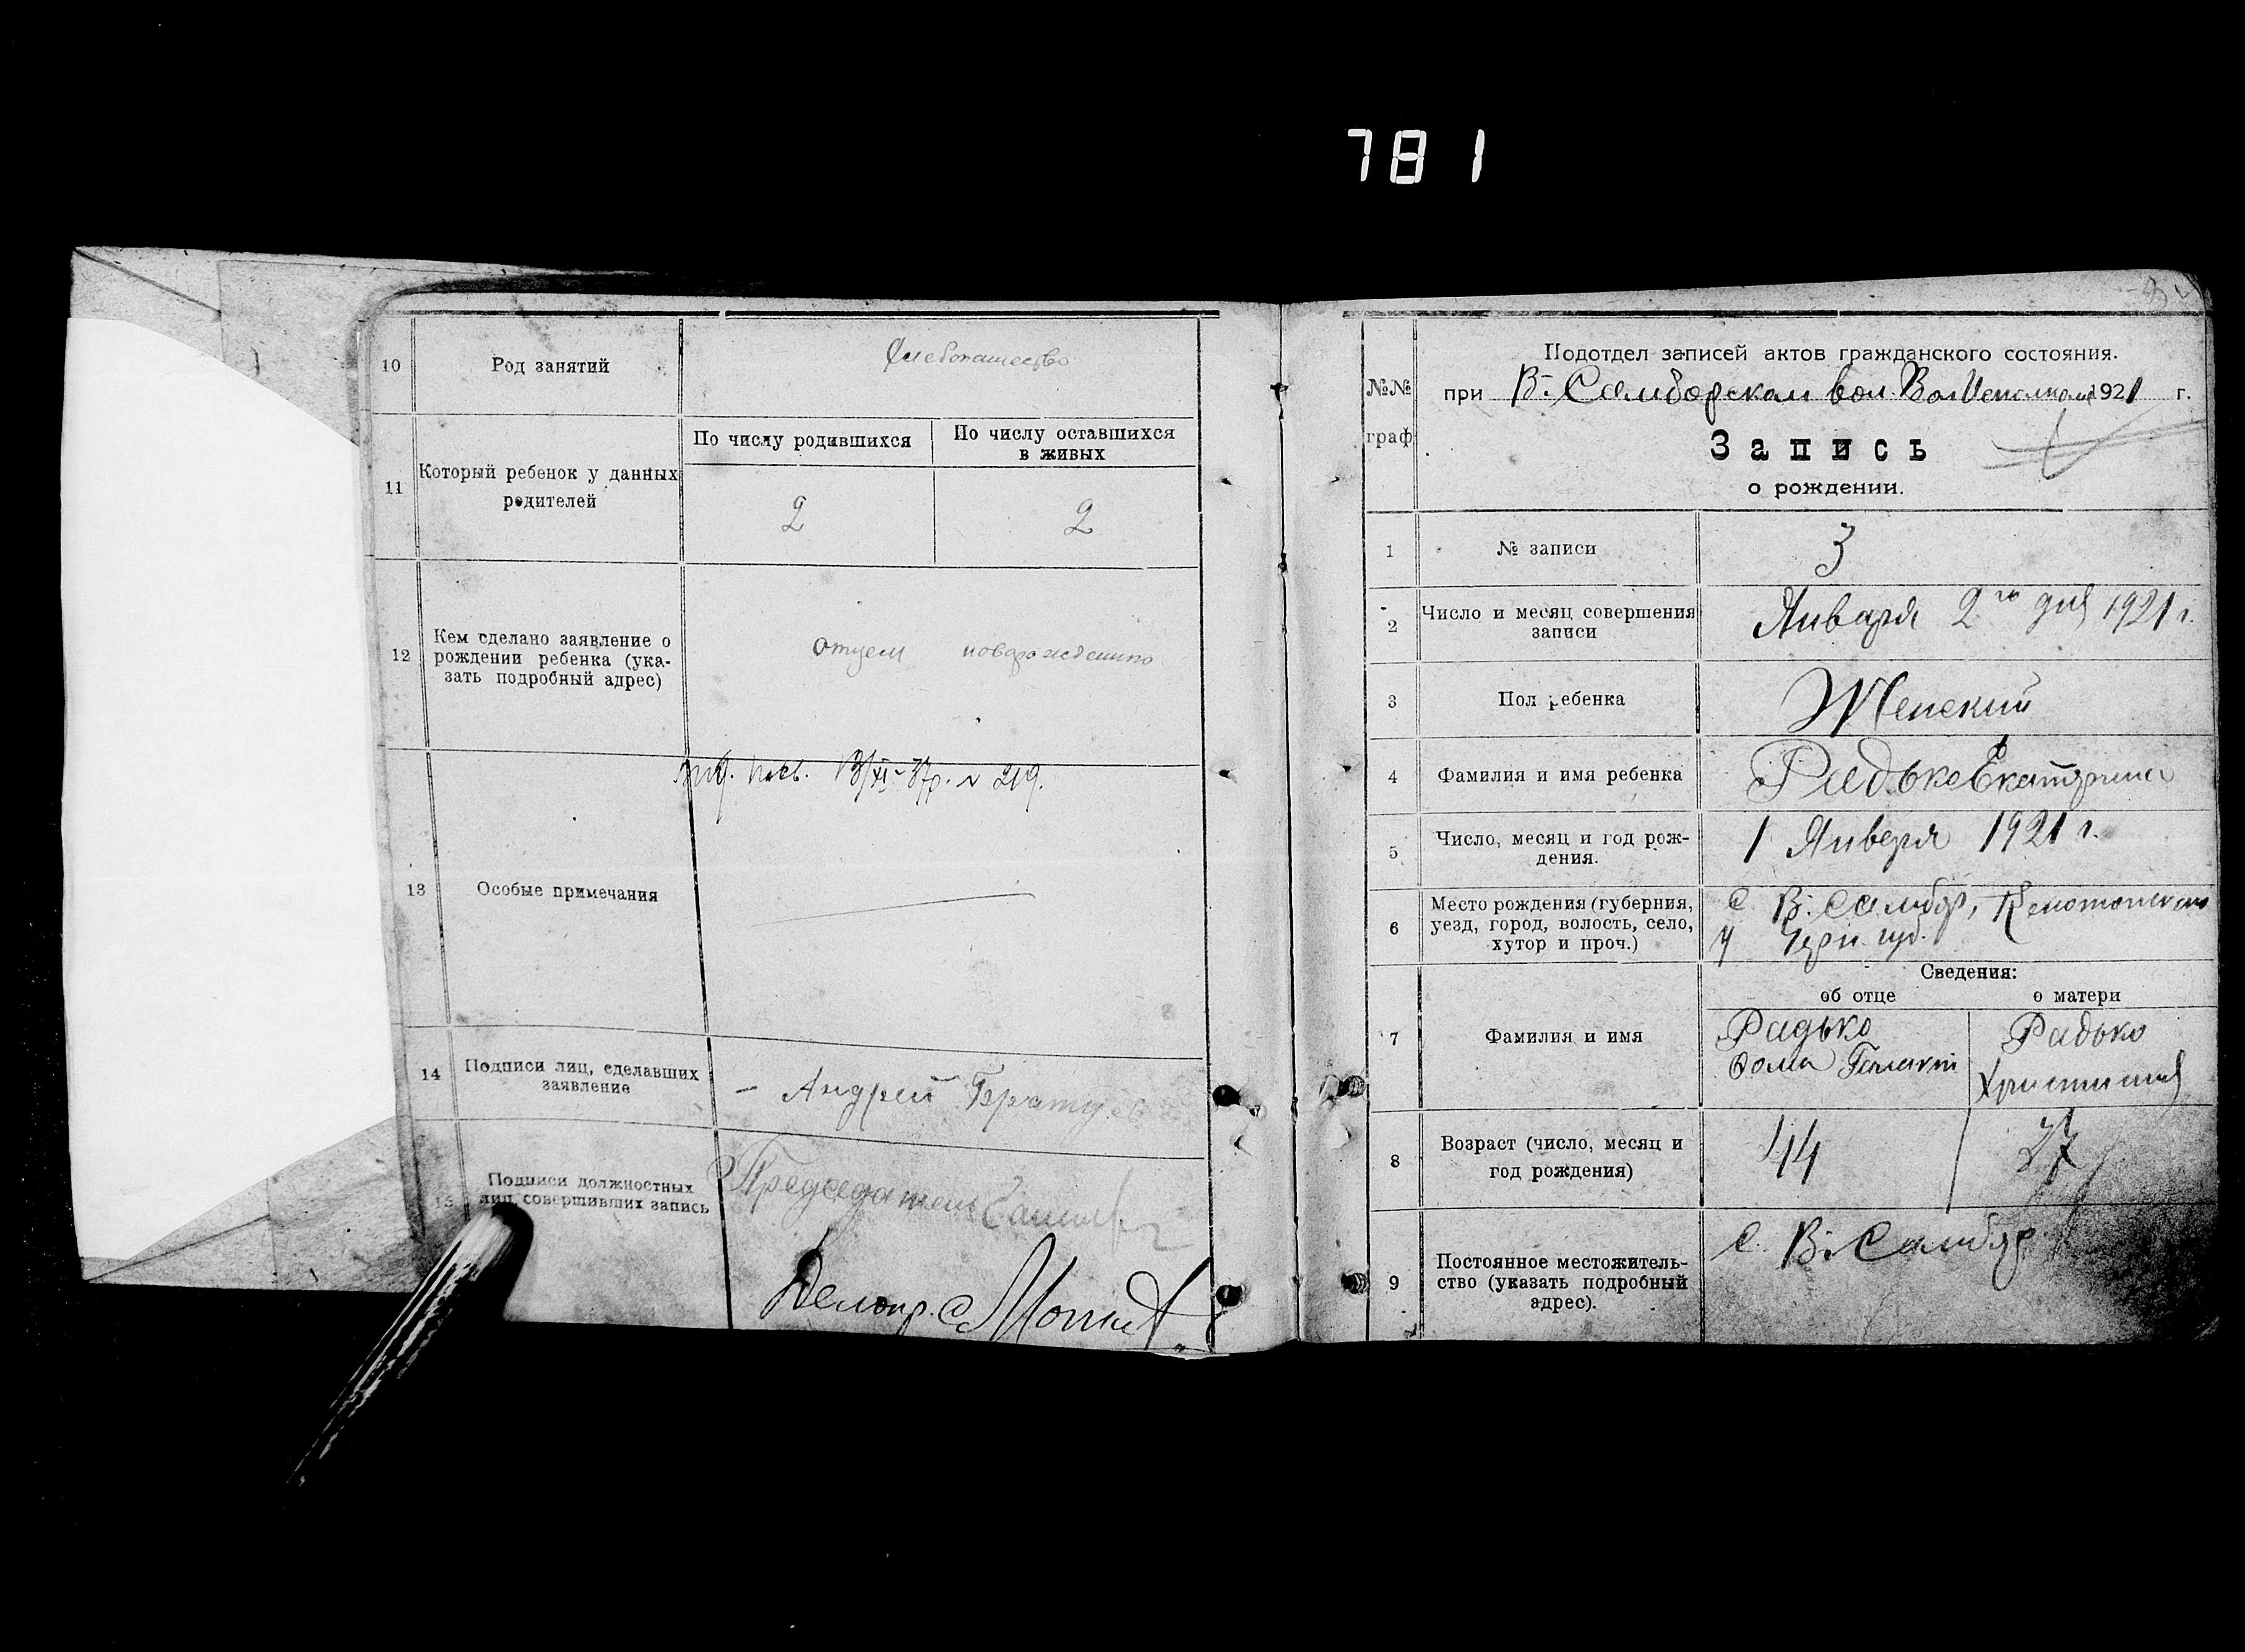 781
10
Род занятий
Хлебопашество
11
Который ребенок у данных
родителей
По числу родившихся
По числу оставшихся
в живых
2
2
12
Кем сделано заявление о
рождении ребенка (ука-
зать подробный адрес)
Отцем новорожденного
13
Особые примечания
13/XI-37р. № 219.
14
Подписи лиц, сделавших
заявление
Андрей
15
Подписи должностных
лиц, совершивших запись
Председатель
Делопр.
№№
граф
Подотдел записей актов гражданского состояния.
при В. Самборском вол. Волисполкоме 1921 г.
Запись
о рождении.
1
№ записи
3
2
Число и месяц совершения
записи
Января 2го дня 1921 г.
3
Пол ребенка
Женский
4
Фамилия и имя ребенка
Радько Екатерина
5
Число, месяц и год рож-
дения.
1 Января 1921 г.
6
Место рождения (губерния,
уезд, город, волость, село,
хутор и проч.)
с. В. Самбор, Конотопского
у Черн. губ.
Сведения:
об отце
о матери
7
Фамилия и имя
Радько
Фома
Радько
Христина
8
Возраст (число, месяц и
год рождения)
44
27
9
Постоянное местожитель-
ство (указать подробный
адрес).
с. В. Самбор